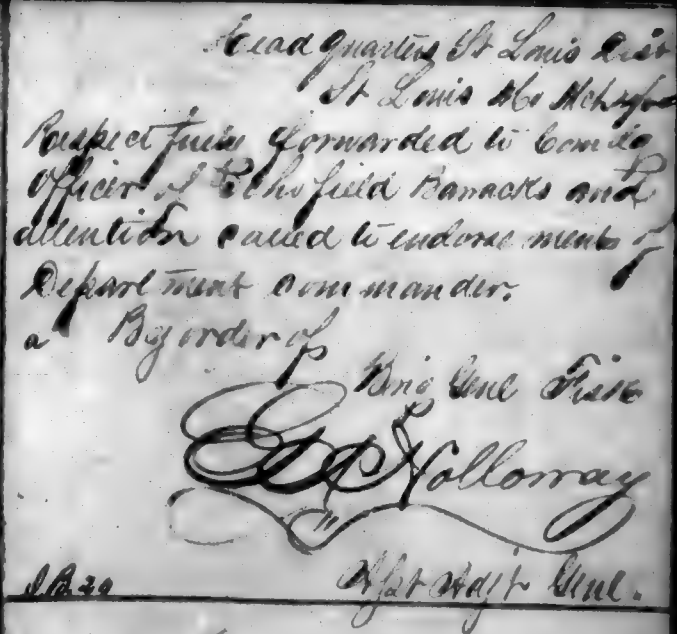 Head Quarters St Louis Dist
St Louis Mo Mch
Respectfully forwarded to Comdg
Officer of Schofield Barracks and
attention called to endorsements of
Department Commander.
By order of
Brig Genl Fisk
Holloway
Asst Adjt Genl.